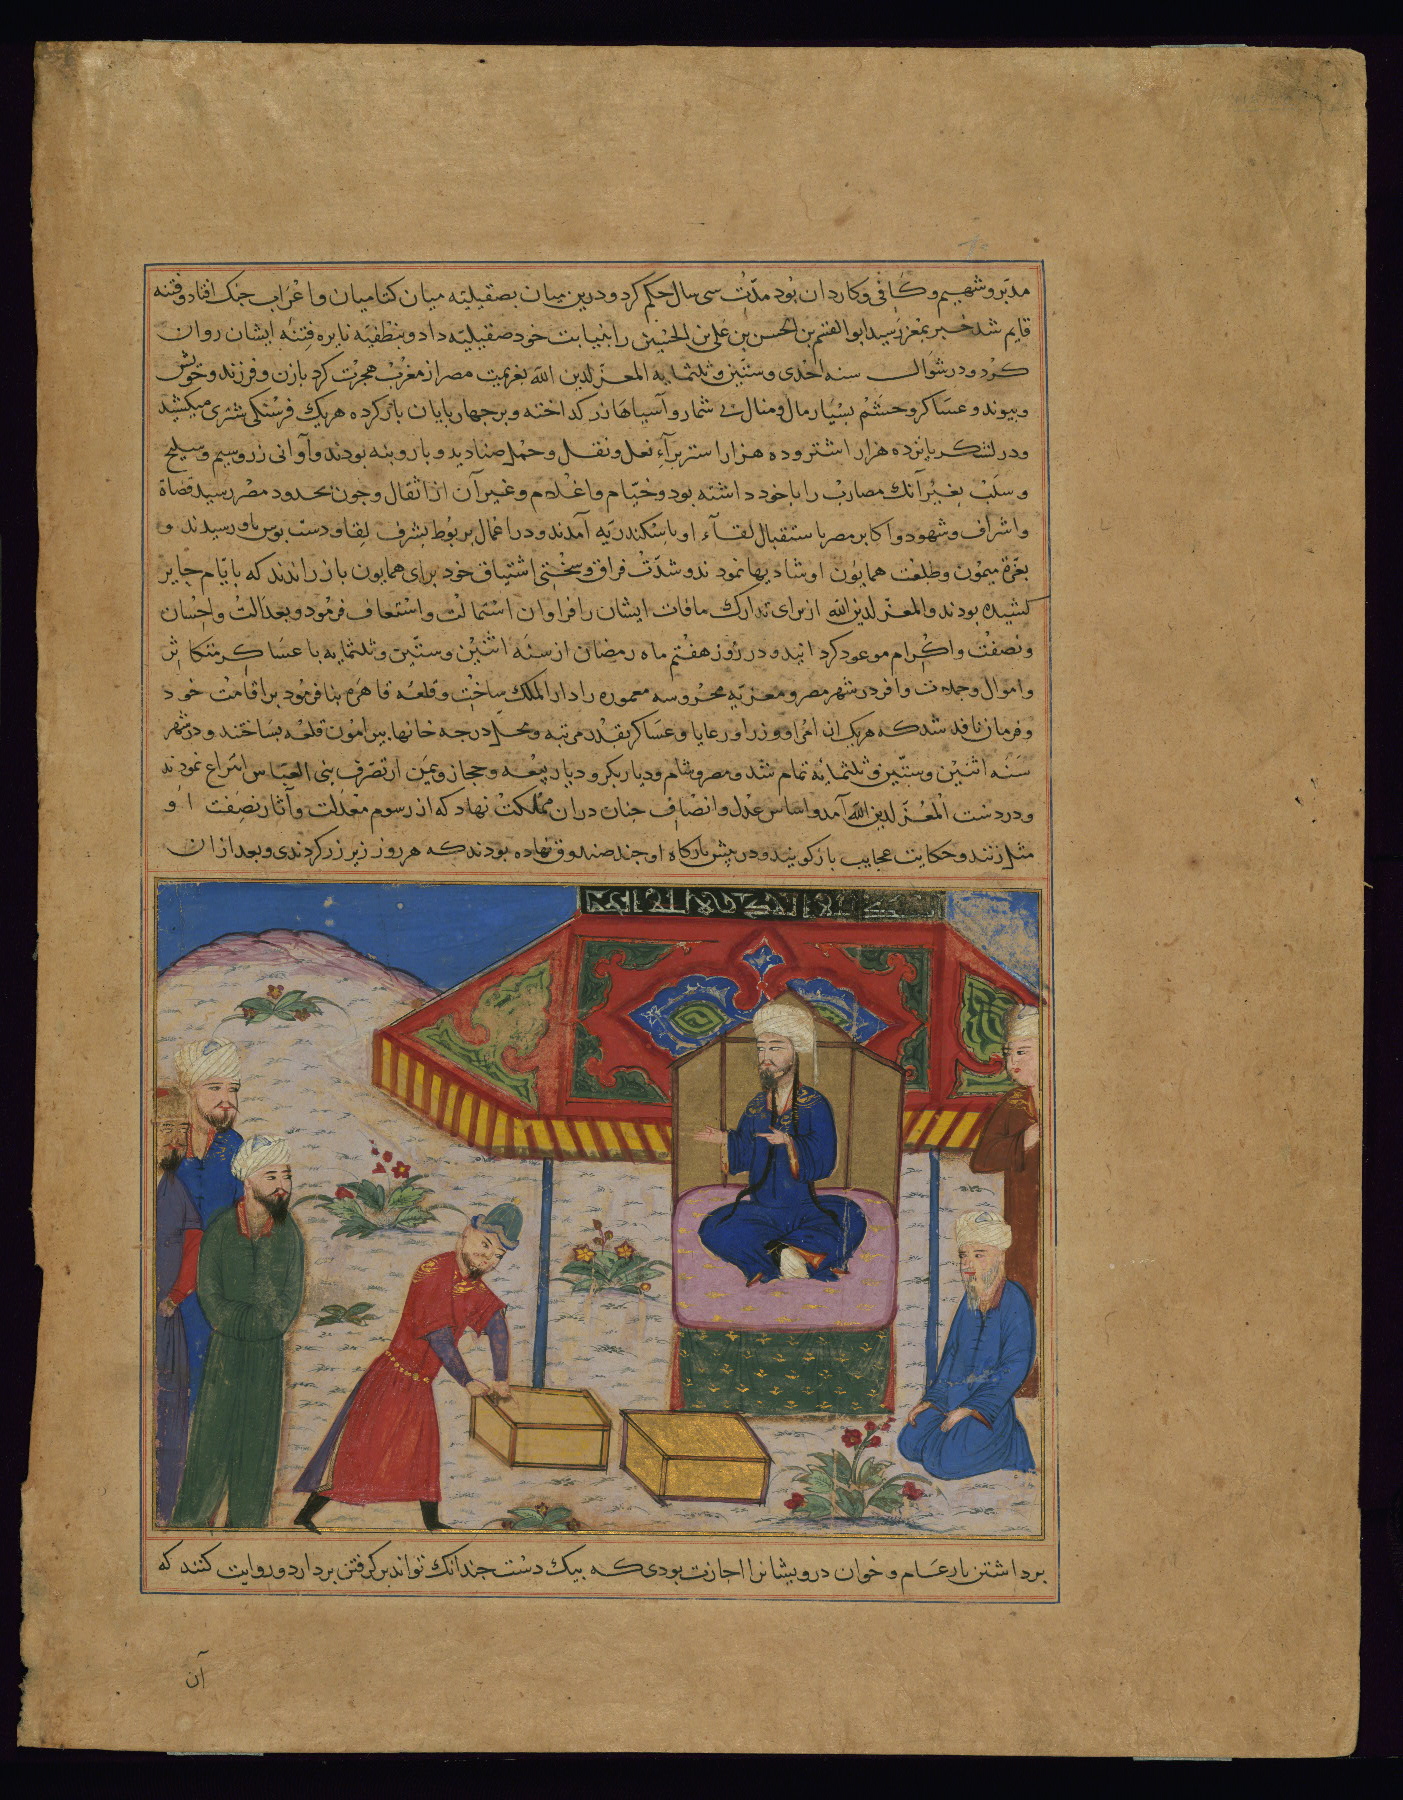 مدبّر و شهیم و کافی و کاردان بود مدّت سی سال حکم کرد و درین میان بصقیلیّه میان کتامیان و اعراب جنک افتاد و فتنه
قایم شد خبر بمعز رسید ابوالقسم بن الحسن بن علی بن الحسین را بنیابت خود صقیلیّه داد و بتطفیه نایره فتنهٔ ایشان روان
کرد و در شوال سنه احدی و ستّین و ثلثمایه المعز لدین الله بعزیمت مصر از مغرب هجرت کرد بازن و فرزند و خویش
و پیوند و عساکر و حشم بسیار مال و منال بی شمار و آسیاها زر کداخته و بر جهارپایان بار کرده هر یک فرسنکی شتری میکشید
و در لشکر بانزده هزار اشتر و ده هزار استر برآء نعل و نقل و حمل صنادید و بار و بنه بودند و آوانی زر و سیم و سلیح
و سلب بغیر آنک مصارب را با خود داشته بود و خیام و اغلام و غیر آن از اثقال و جون بحدود مصر رسید قضاة
و اشراف و شهود و اکابر مصر باستقبال لقآء او باسکندریّه آمدند و در اعمال بربوط بشرف لقا و دست بوس باو رسیدند و
بغرّه میمون و طلعت همایون او شادیها نمودند و شدّت فراق و سختی اشتیاق خود برای همایون باز راندند که بایّام جایر
کشیده بودند و المعز لدین الله از برای تدارک مافات ایشان را فراوان استمالت و استعاف فرمود و بعدالت و احسان
و نصفت و اکرام موعود کردانید و در روز هفتم ماه رمضان از سنه اثنین و ستّین و ثلثمایه با عساکر متکاثر
و اموال و جلات وافر در شهر مصر و معزیّه محروسه معموره را دار الملک ساخت و قلعه قاهره بنا فرمود برا اقامت خود
و فرمان نافذ شد که هر یک از امرا و وزرا و رعایا و عساکر بقدر مرتبه و محل درجه خانها بیرامون قلعه بساختند و در شهر
سنه اثنین و ستّین و ثلثمایه تمام شد و مصر و شام و دیار بکر و دیار ربیعه و حجاز و یمن از تصرّف بنی العبّاس انتزاع نمودند
و در دست المعزّ لدین الله آمد و اساس عدل و انصاف جنان دران مملکت نهاد که از رسوم معدلت و آثار نصفت او
مثل زنند و حکایت عجایب باز کویند و در پیش بارکاه او جند صندوق نهاده بودند که هر روز پر زر کردندی و بعد از ان
برداشتن بار عام و خوان درویشانرا اجازت بودی که بیک دست جندانک تواند بر کرفتن بردارد و روایت کنند که
آن